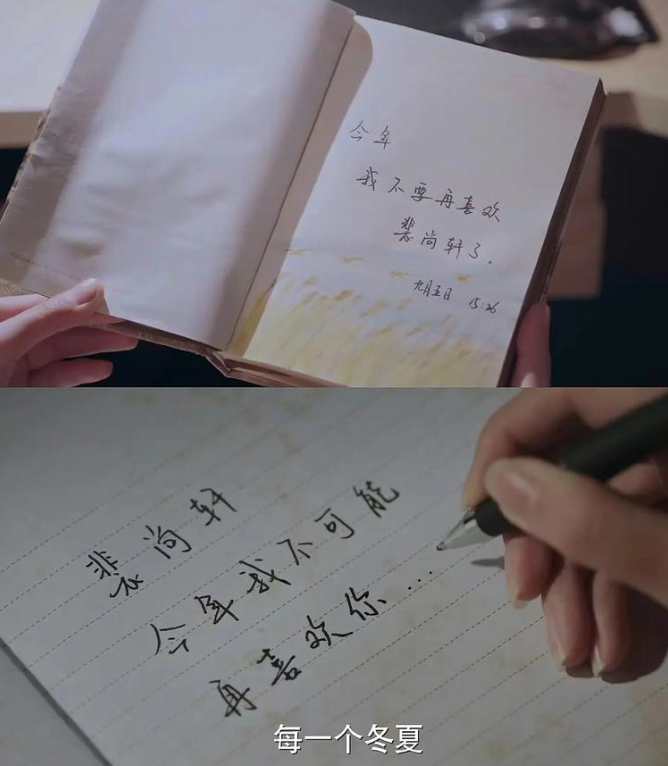 今年
我不要再喜欢
裴尚轩了.
九月五日 15:26
裴尚轩
今年我不可能
再喜欢你...
每一个冬夏